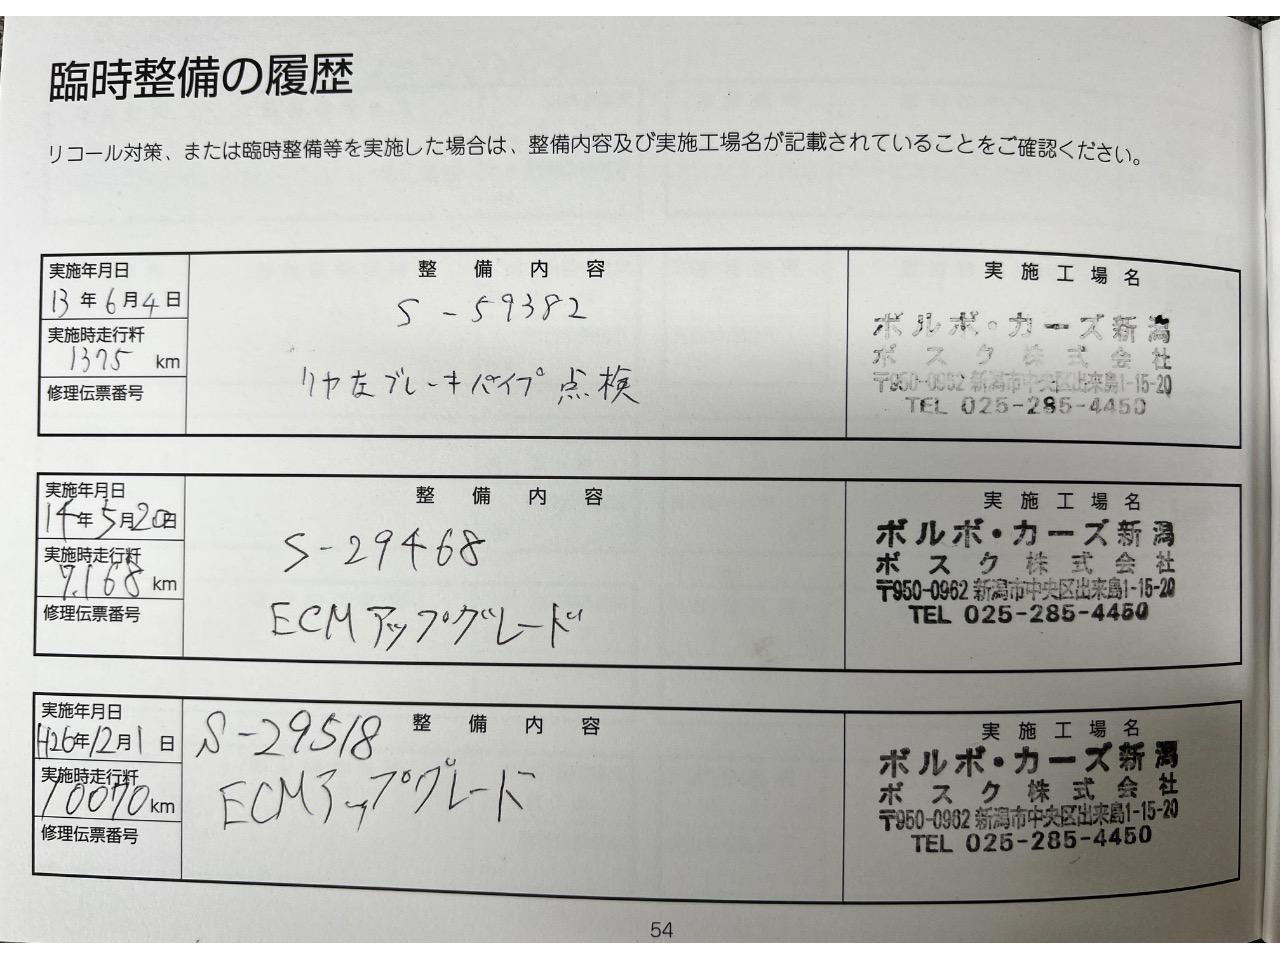 臨時整備の履歴
リコール対策、または臨時整備等を実施した場合は、整備内容及び実施工場名が記載されていることをご確認ください。
実施年月日
13年6月4日
実施時走行粁
1375 km
修理伝票番号
整備内容
S-59382
リヤ左ブレーキパイプ点検
実施工場名
ボルボ・カーズ新潟
ボスク株式会社
〒950-0962 新潟市中央区出来島1-15-20
TEL 025-285-4450
実施年月日
14年5月20日
実施時走行粁
7,168 km
修理伝票番号
整備内容
S-29468
ECMアップグレード
実施工場名
ボルボ・カーズ新潟
ボスク株式会社
〒950-0962 新潟市中央区出来島1-15-20
TEL 025-285-4450
実施年月日
H26年12月1日
実施時走行粁
10070km
修理伝票番号
整備内容
S-29518
ECMアップグレード
実施工場名
ボルボ・カーズ新潟
ボスク株式会社
〒950-0962 新潟市中央区出来島1-15-20
TEL 025-285-4450
54